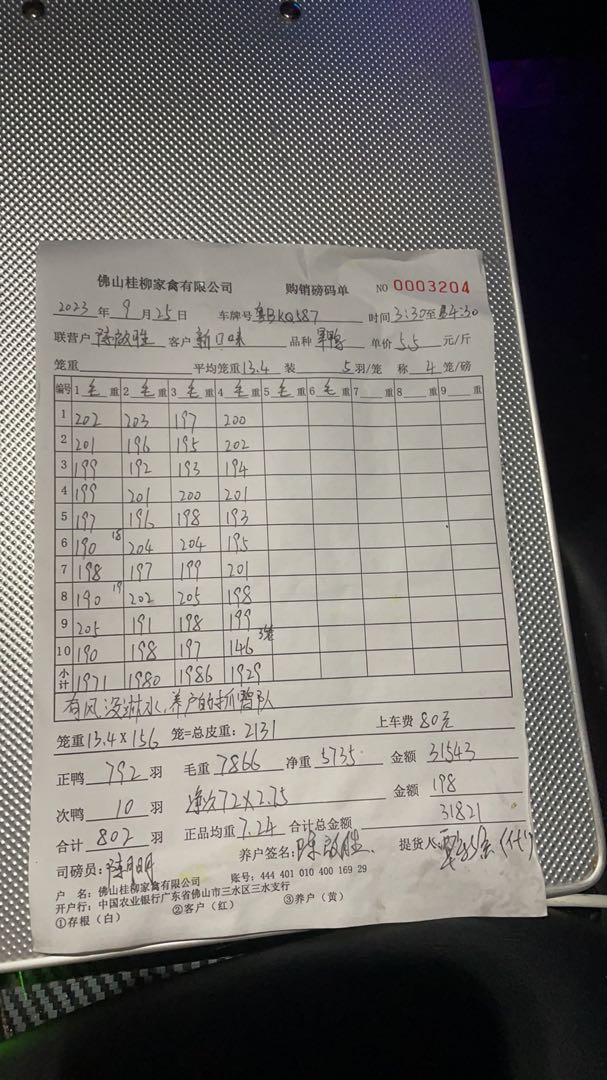 佛山桂柳家禽有限公司 购销磅码单 NO 0003204
2023 年 9 月 25 日 车牌号 粤BKQ587 时间 3:30至 4:30
联营户 陈啟胜 客户 新口味 品种 单价 5.5 元/斤
笼重 平均笼重 13.4 装 5 羽/笼 称 4 笼/磅
编号 1 毛 重 2 毛 重 3 毛 重 4 毛 重 5 毛 重 6 毛 重 7 重 8 重 9 重
1 202 203 197 200
2 201 196 195 202
3 199 192 193 194
4 199 201 200 201
5 197 196 198 193
6 190 18 204 204 195
7 198 197 199 201
8 190 19 202 205 198
9 205 191 198 199
10 190 198 197 146 3笼
小计 1971 1980 1986 1929
有风没淋水,养户的抓鸭队
笼重 13.4 × 156 笼=总皮重: 2131 上车费 80元
正鸭 792 羽 毛重 7866 净重 5735 金额 31543
次鸭 10 羽 净次72×2.75 金额 198
合计 802 羽 正品均重 7.24 合计总金额 31821
司磅员: 养户签名: 陈啟胜 提货人: (代)
户 名: 佛山桂柳家禽有限公司 账号: 444 401 010 400 169 29
开户行: 中国农业银行广东省佛山市三水区三水支行
①存根(白) ②客户(红) ③养户(黄)